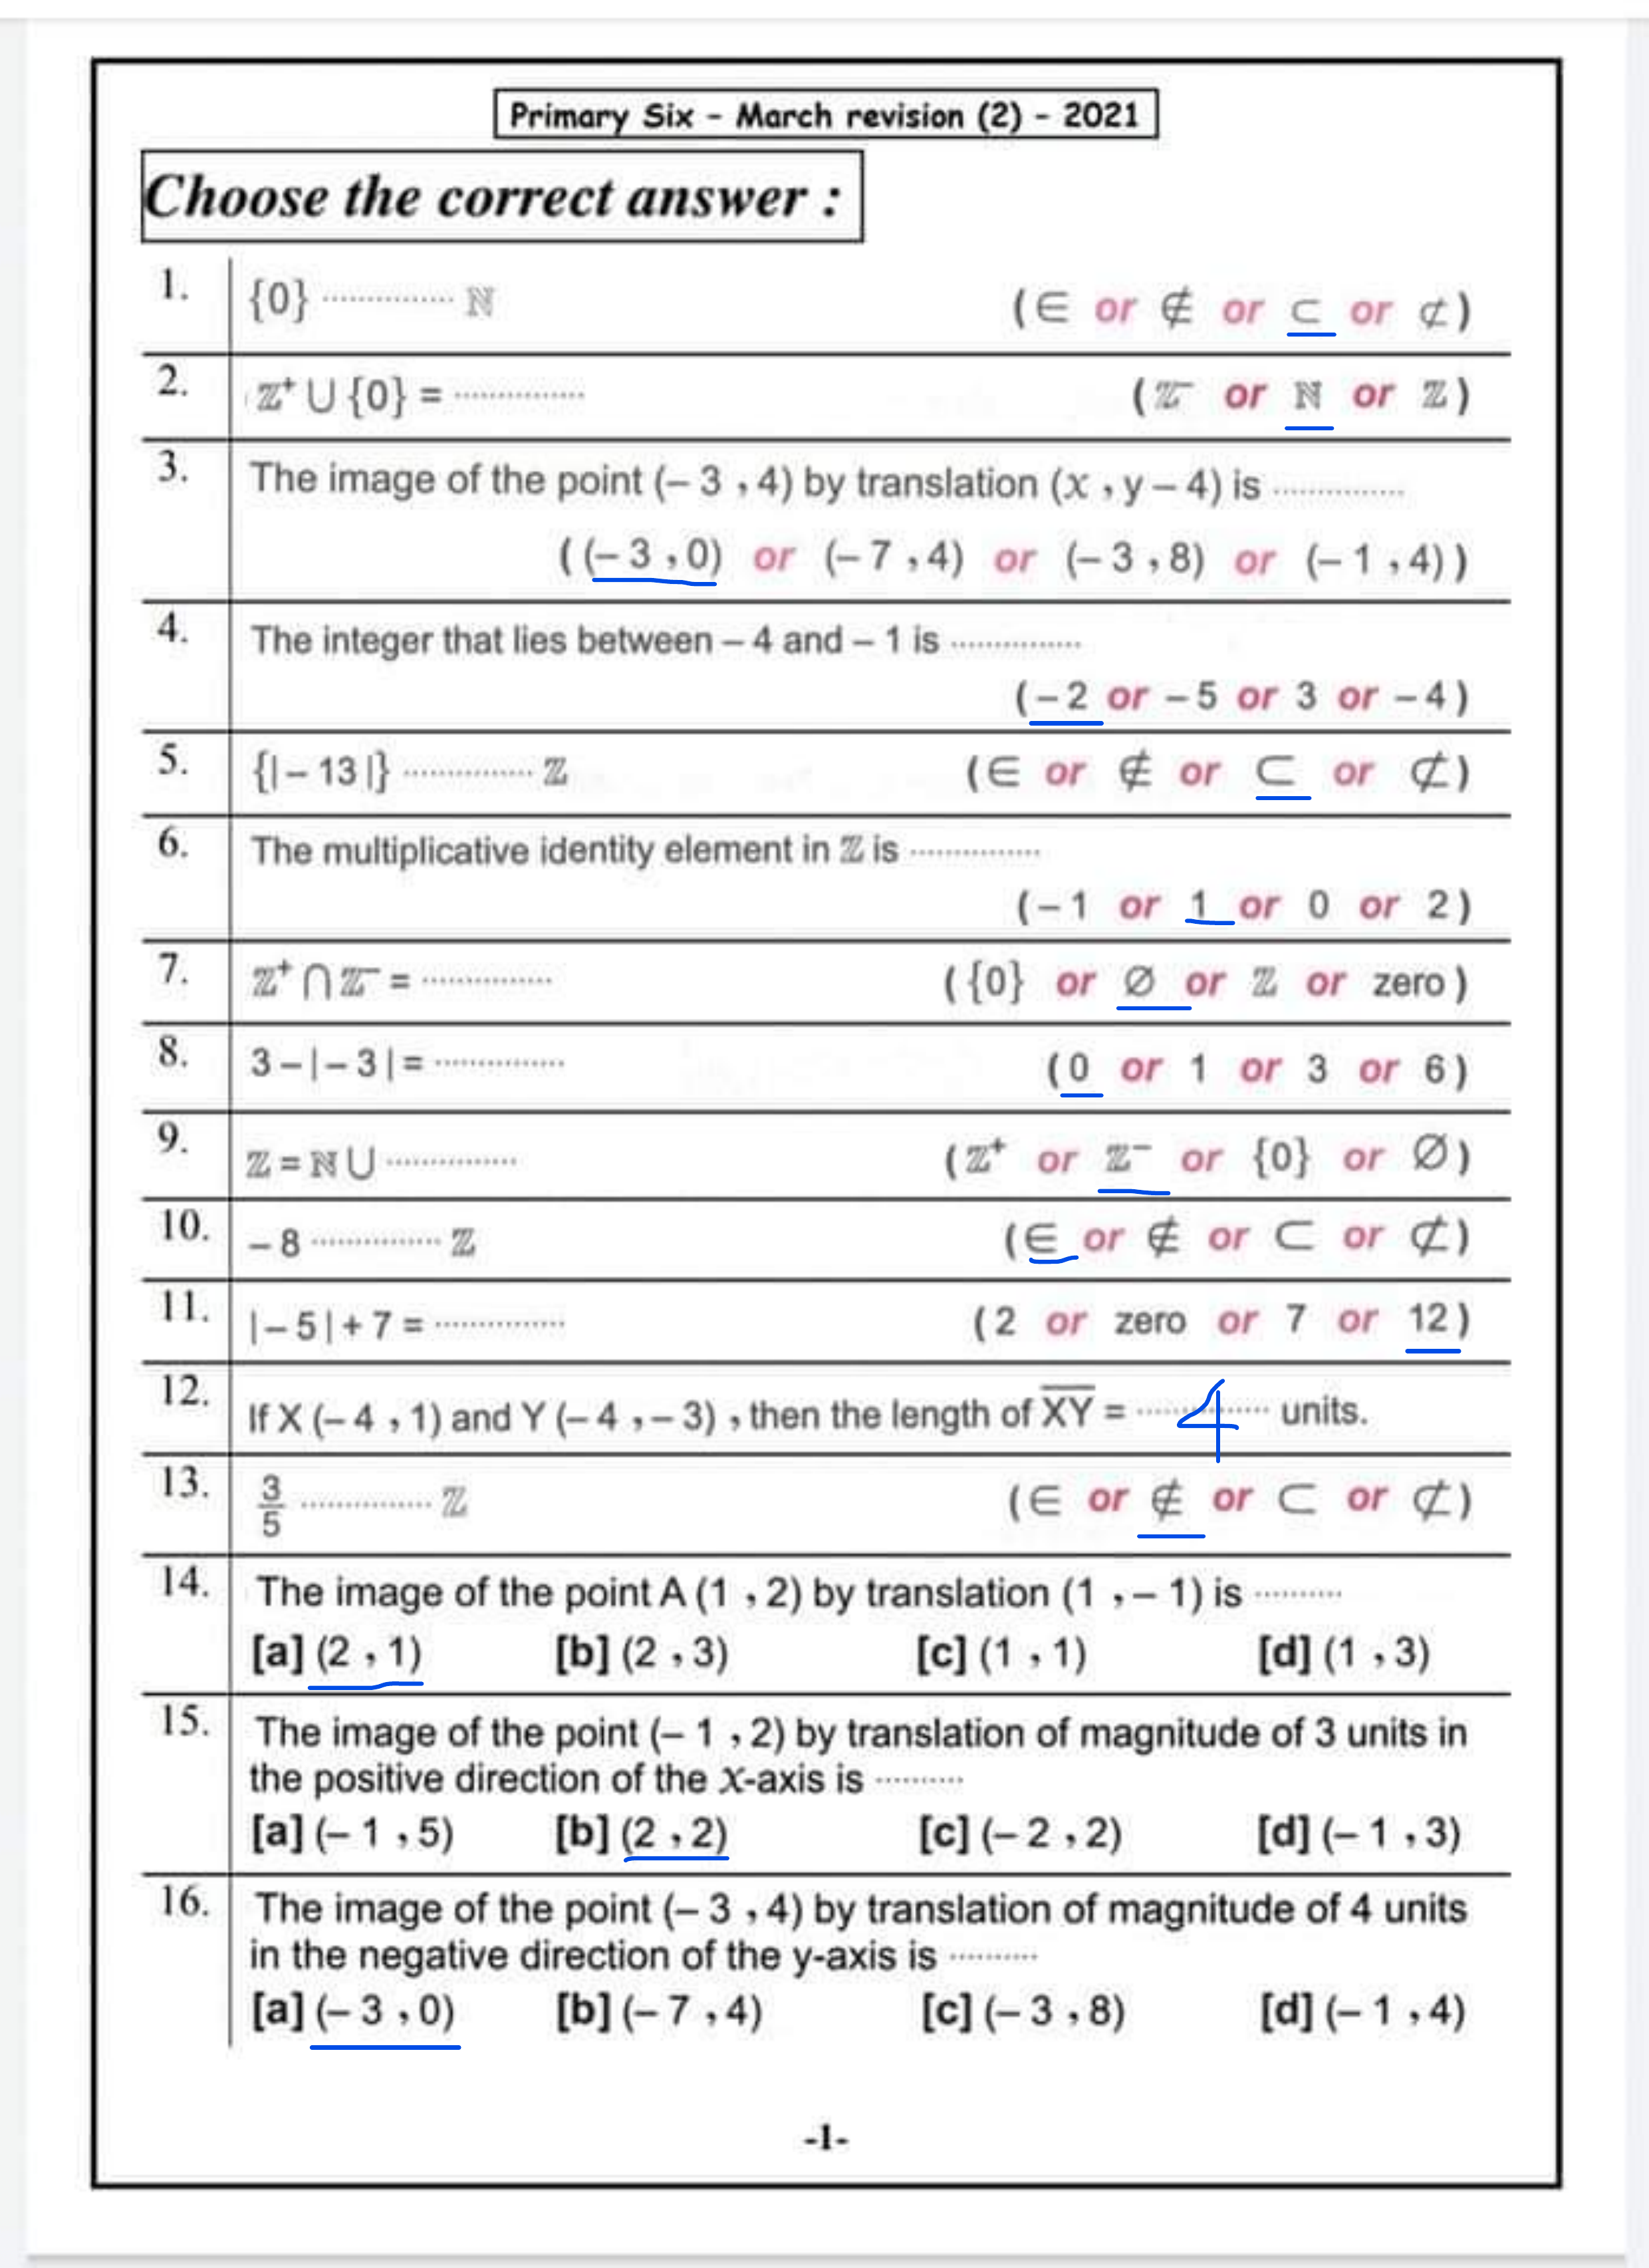 Primary Six - March revision (2) - 2021
Choose the correct answer :
1. {0} ·············· ℕ (∈ or ∉ or ⊂ or ⊄)
2. ℤ⁺ ∪ {0} = ·············· (ℤ⁻ or ℕ or ℤ)
3. The image of the point (– 3 , 4) by translation (x , y – 4) is ··············
((– 3 , 0) or (– 7 , 4) or (– 3 , 8) or (– 1 , 4))
4. The integer that lies between – 4 and – 1 is ··············
(– 2 or – 5 or 3 or – 4)
5. {|– 13|} ·············· ℤ (∈ or ∉ or ⊂ or ⊄)
6. The multiplicative identity element in ℤ is ··············
(– 1 or 1 or 0 or 2)
7. ℤ⁺ ∩ ℤ⁻ = ·············· ({0} or ∅ or ℤ or zero)
8. 3 – |– 3| = ·············· (0 or 1 or 3 or 6)
9. ℤ = ℕ ∪ ·············· (ℤ⁺ or ℤ⁻ or {0} or ∅)
10. – 8 ·············· ℤ (∈ or ∉ or ⊂ or ⊄)
11. |– 5| + 7 = ·············· (2 or zero or 7 or 12)
12. If X (– 4 , 1) and Y (– 4 , – 3) , then the length of X̅Y̅ = ······ 4 ······ units.
13. 3/5 ·············· ℤ (∈ or ∉ or ⊂ or ⊄)
14. The image of the point A (1 , 2) by translation (1 , – 1) is ·········
[a] (2 , 1) [b] (2 , 3) [c] (1 , 1) [d] (1 , 3)
15. The image of the point (– 1 , 2) by translation of magnitude of 3 units in
the positive direction of the X-axis is ·········
[a] (– 1 , 5) [b] (2 , 2) [c] (– 2 , 2) [d] (– 1 , 3)
16. The image of the point (– 3 , 4) by translation of magnitude of 4 units
in the negative direction of the y-axis is ·········
[a] (– 3 , 0) [b] (– 7 , 4) [c] (– 3 , 8) [d] (– 1 , 4)
-1-